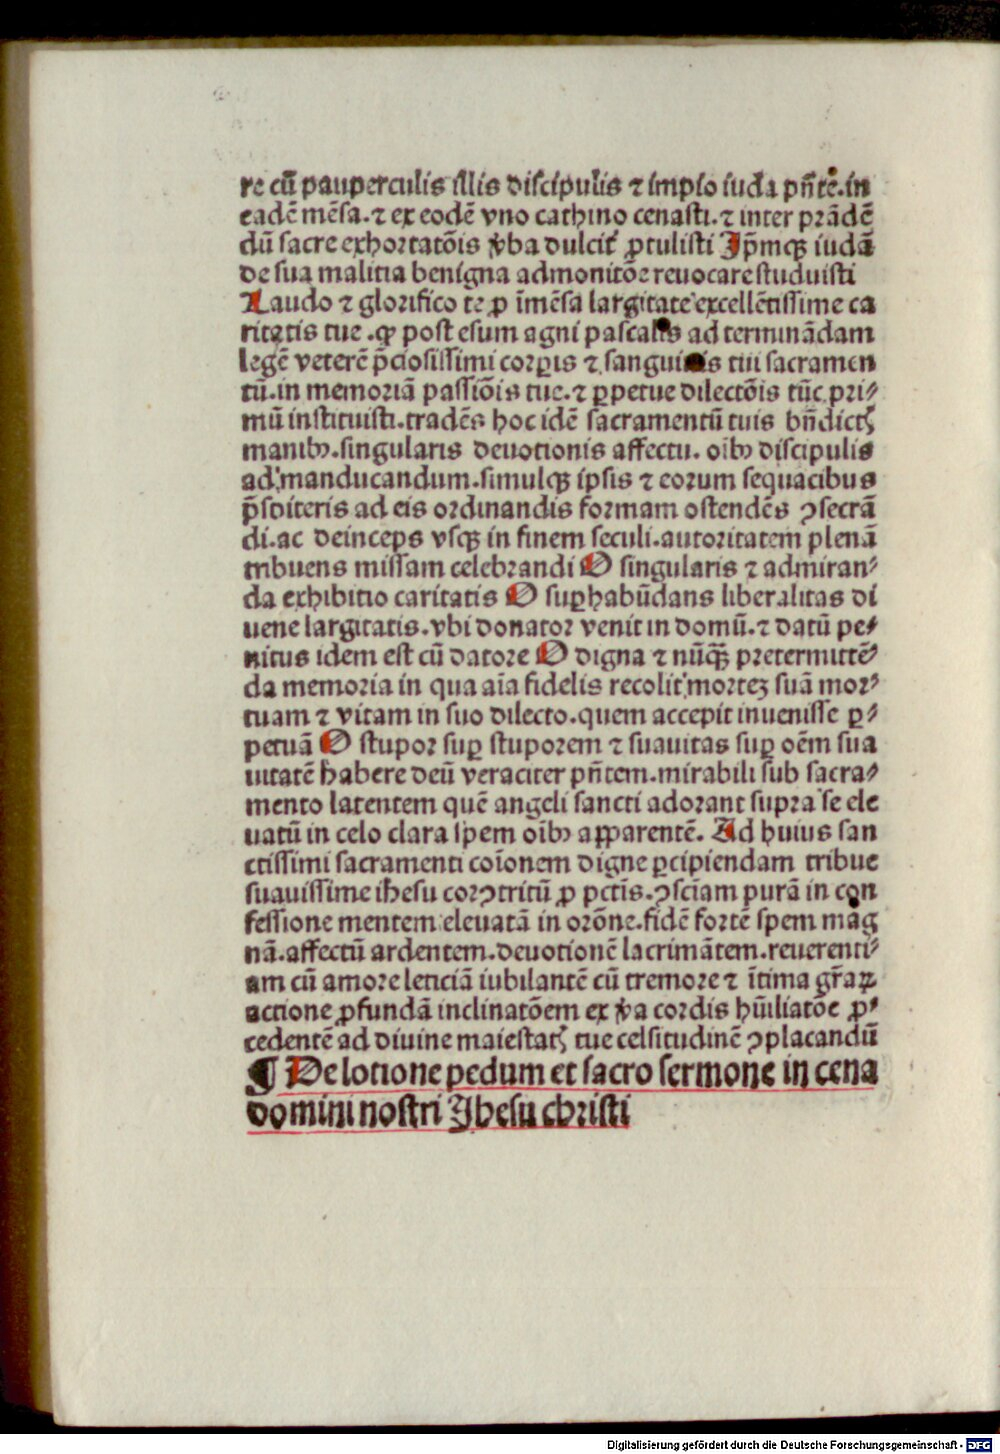 re cū pauperculis illis discipulis ⁊ impio iuda pn̄te.in
eadē mēsa.⁊ ex eodē vno cathino cenasti.⁊ inter prādē
dū sacre exhortatōis v̄ba dulcit͛ ꝓtulisti Ip̄mqꝫ iudā
de sua malitia benigna admonitōe reuocare studuisti
Laudo ⁊ glorifico te ꝓ īmēsa largitate excellētissime ca
ritatis tue .ꝙ post esum agni pascalis ad terminādam
legē veterē p̄ciosissimi corꝑis ⁊ sanguinis tui sacramen
tū.in memoriā passiōis tue.⁊ ꝑpetue dilectōis tūc pri⸗
mū instituisti.tradēs hoc idē sacramentū tuis bn̄dictꝭ
manibꝰ.singularis deuotionis affectu. oībꝰ discipulis
ad manducandum.simulqꝫ ipsis ⁊ eorum sequacibus
p̄sbiteris ad eis ordinandis formam ostendēs ꝯsecrā
di.ac deinceps vsqꝫ in finem seculi.autoritatem plenā
tribuens missam celebrandi O singularis ⁊ admiran⸗
da exhibitio caritatis O suꝑhabūdans liberalitas di
uene largitatis.vbi donator venit in domū.⁊ datū pe⸗
nitus idem est cū datore O digna ⁊ nūqꝫ̄ pretermittē⸗
da memoria in qua aīa fidelis recolit morteꝫ suā mor⸗
tuam ⁊ vitam in suo dilecto.quem accepit inuenisse ꝑ⸗
petuā O stupor suꝑ stuporem ⁊ suauitas suꝑ oēm sua
uitatē habere deū veraciter pn̄tem.mirabili sub sacra⸗
mento latentem quē angeli sancti adorant supra se ele
uatū in celo clara spem oībꝰ apparentē. Ad huius san
ctissimi sacramenti coīonem digne ꝑcipiendam tribue
suauissime ihesu cor ꝯtritū ꝓ pctīs.ꝯsciam̄ purā in con
fessione mentem eleuatā in orōne.fidē fortē spem mag
nā.affectū ardentem.deuotionē lacrimātem.reuerenti⸗
am cū amore leticiā iubilantē cū tremore ⁊ ītima gr̄aꝝ
actione ꝓfundā inclinatōem ex v̄a cordis hūiliatōe ꝓ⸗
cedentē ad diuine maiestatꝭ tue celsitudinē ꝯplacandū
¶ De lotione pedum et sacro sermone in cena
domini nostri Jhesu christi
Digitalisierung gefördert durch die Deutsche Forschungsgemeinschaft - DFG